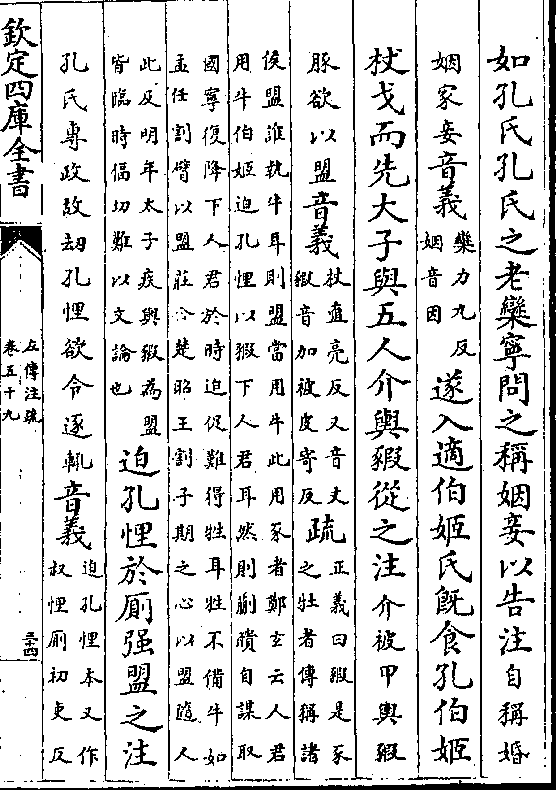 如孔氏孔氏之老欒寧問之稱姻妾以告注自稱婚
姻家妾音義欒力九反
姻音因
遂入適伯姬氏旣食孔伯姬
杖戈而先大子與五人介輿豭從之注介被甲輿豭
豚欲以盟音義杖直亮反又音丈
豭音加被皮寄反
疏正義曰豭是豕
之牡者傳稱諸
侯盟誰執牛耳則盟當用牛此用豕者鄭玄云人君
用牛伯姬迫孔悝以豭下人君耳然則蒯聵自謀取
國寧復降下人君於時迫促難得牲耳牲不備牛如
孟任割臂以盟莊公楚昭王割子期之心以盟隨人
此及明年太子疾輿豭為盟
皆臨時偪切難以文論也
迫孔悝於厠强盟之注
孔氏專政故刧孔悝欲令逐輒音義迫孔悝本又作
叔悝厠初吏反
欽定四庫全書
左傳注疏
卷五十九
三十四